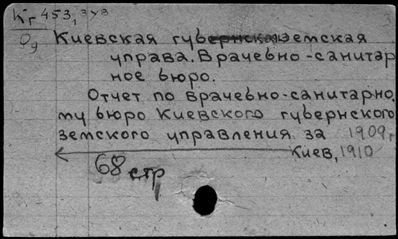 Кг 453, 343
Од Киевская губернская земская
управа. Врачебно-санитар
ное бюро.
Отчет по врачебно-санитарно
му бюро Киевского губернского
земского управления за 1909г
Киев, 1910
68 стр